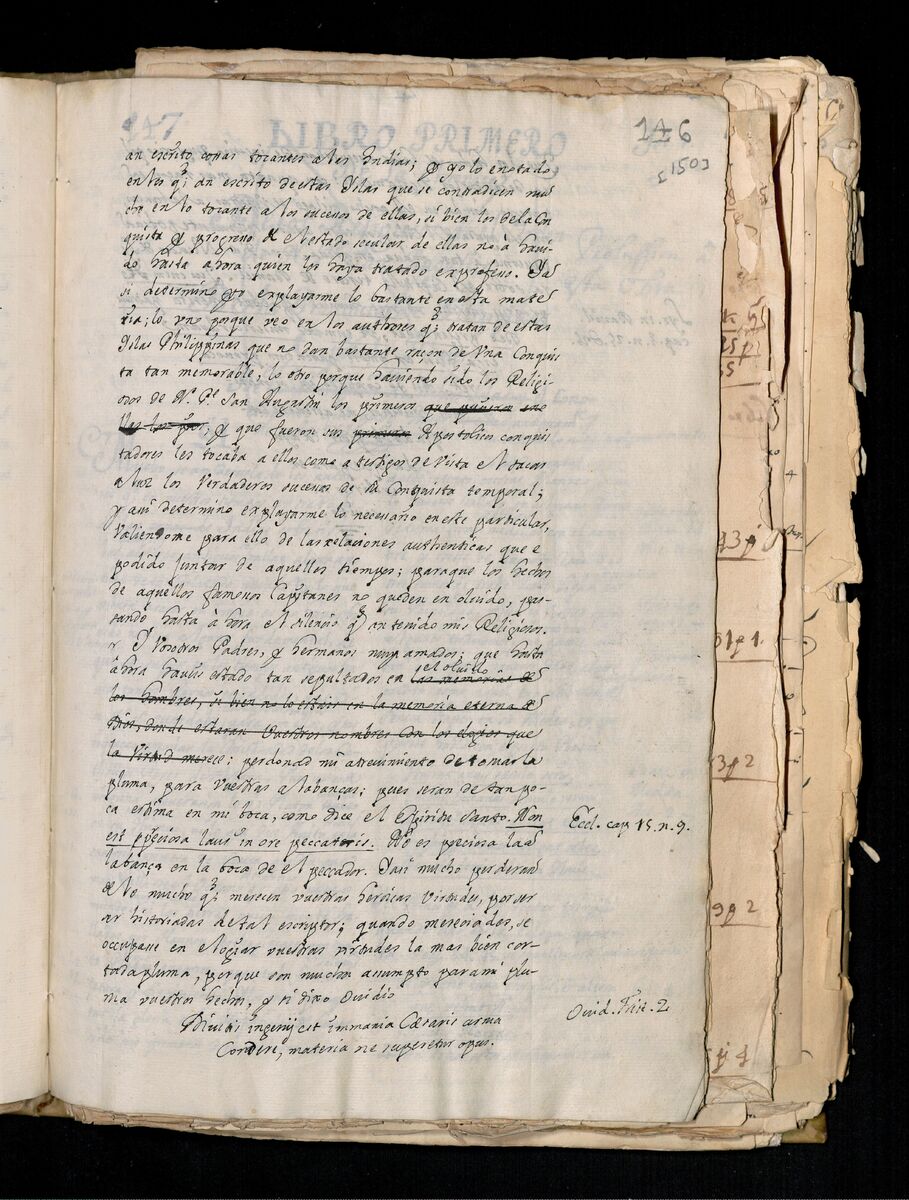 146
[150]
an escrito cosas tocantes a las Indias; y yo lo e notado
en los q̃ an escrito de estas Yslas que se contradicen mu
cho en lo tocante a los sucesos de ellas, si bien los de la Con
quista y progreso de el estado secular de ellas no à havi-
do hasta ahora quien los haya tratado exprofeso. Ya
si determino yo explayarme lo bastante en esta mate
ria; lo vno porque veo en los authores q̃ tratan de estas
Yslas Philippinas que no dan bastante raçon de Vna Conquis
ta tan memorable; lo otro porque haviendo sido los Religi
osos de N. P. San Augustin los primeros que
; y que fueron sus Apostolicos conquis
tadores les tocaba a ellos como a testigos de Vista el sacar
a luz los Verdaderos sucesos de la Conquista temporal;
y assi determino explayarme lo necessario en este particular,
Valiendome para ello de las relaciones authenticas que e
podido juntar de aquellos tiempos; para que los hechos
de aquellos famosos Capitanes no queden en olvido, pas-
sando hasta à hora el silencio q̃ an tenido mis Religiosos.
Y Vosotros Padres, y hermanos muy amados; que hasta
àhora haveis estado tan sepultados en el olvido las memorias de
los hombres, si bien no lo estais en la memoria eterna de
Dios, donde estaran Vuestros nombres con los elogios que
la Virtud merece; perdonad mi atrevimiento de tomar la
pluma, para Vuestras alabanças; pues seran de tan po-
ca estima en mi boca, como dice el Espiritu Santo. Non
est speciosa laus in ore peccatoris. No es preciosa la a
labança en la boca de el peccador. Y assi mucho perderan
de lo mucho q̃ merecen vuestras heroicas Virtudes, por ser
historiadas de tal escriptor; quando mereciades, se
occupase en elogiar vuestras virtudes la mas bien cor-
tada pluma, porque son mucho assumpto para mi plu-
ma vuestros hechos, y si dixo Ovidio
Divitis ingenij est immania Cæsaris arma
Condere, materia ne superetur opus.
Eccl. cap 15. n. 9.
Ovid. Trist. 2